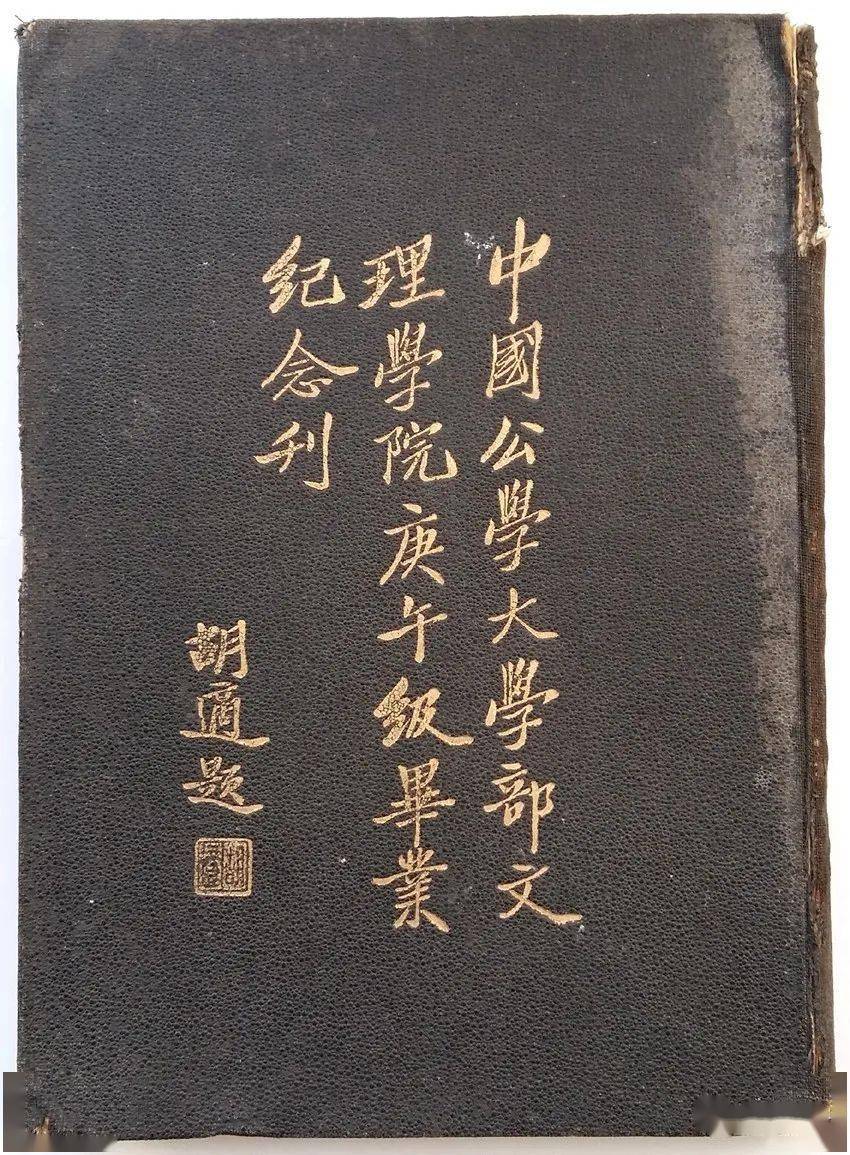 中國公學大學部文
理學院庚午級畢業
紀念刊
胡適題